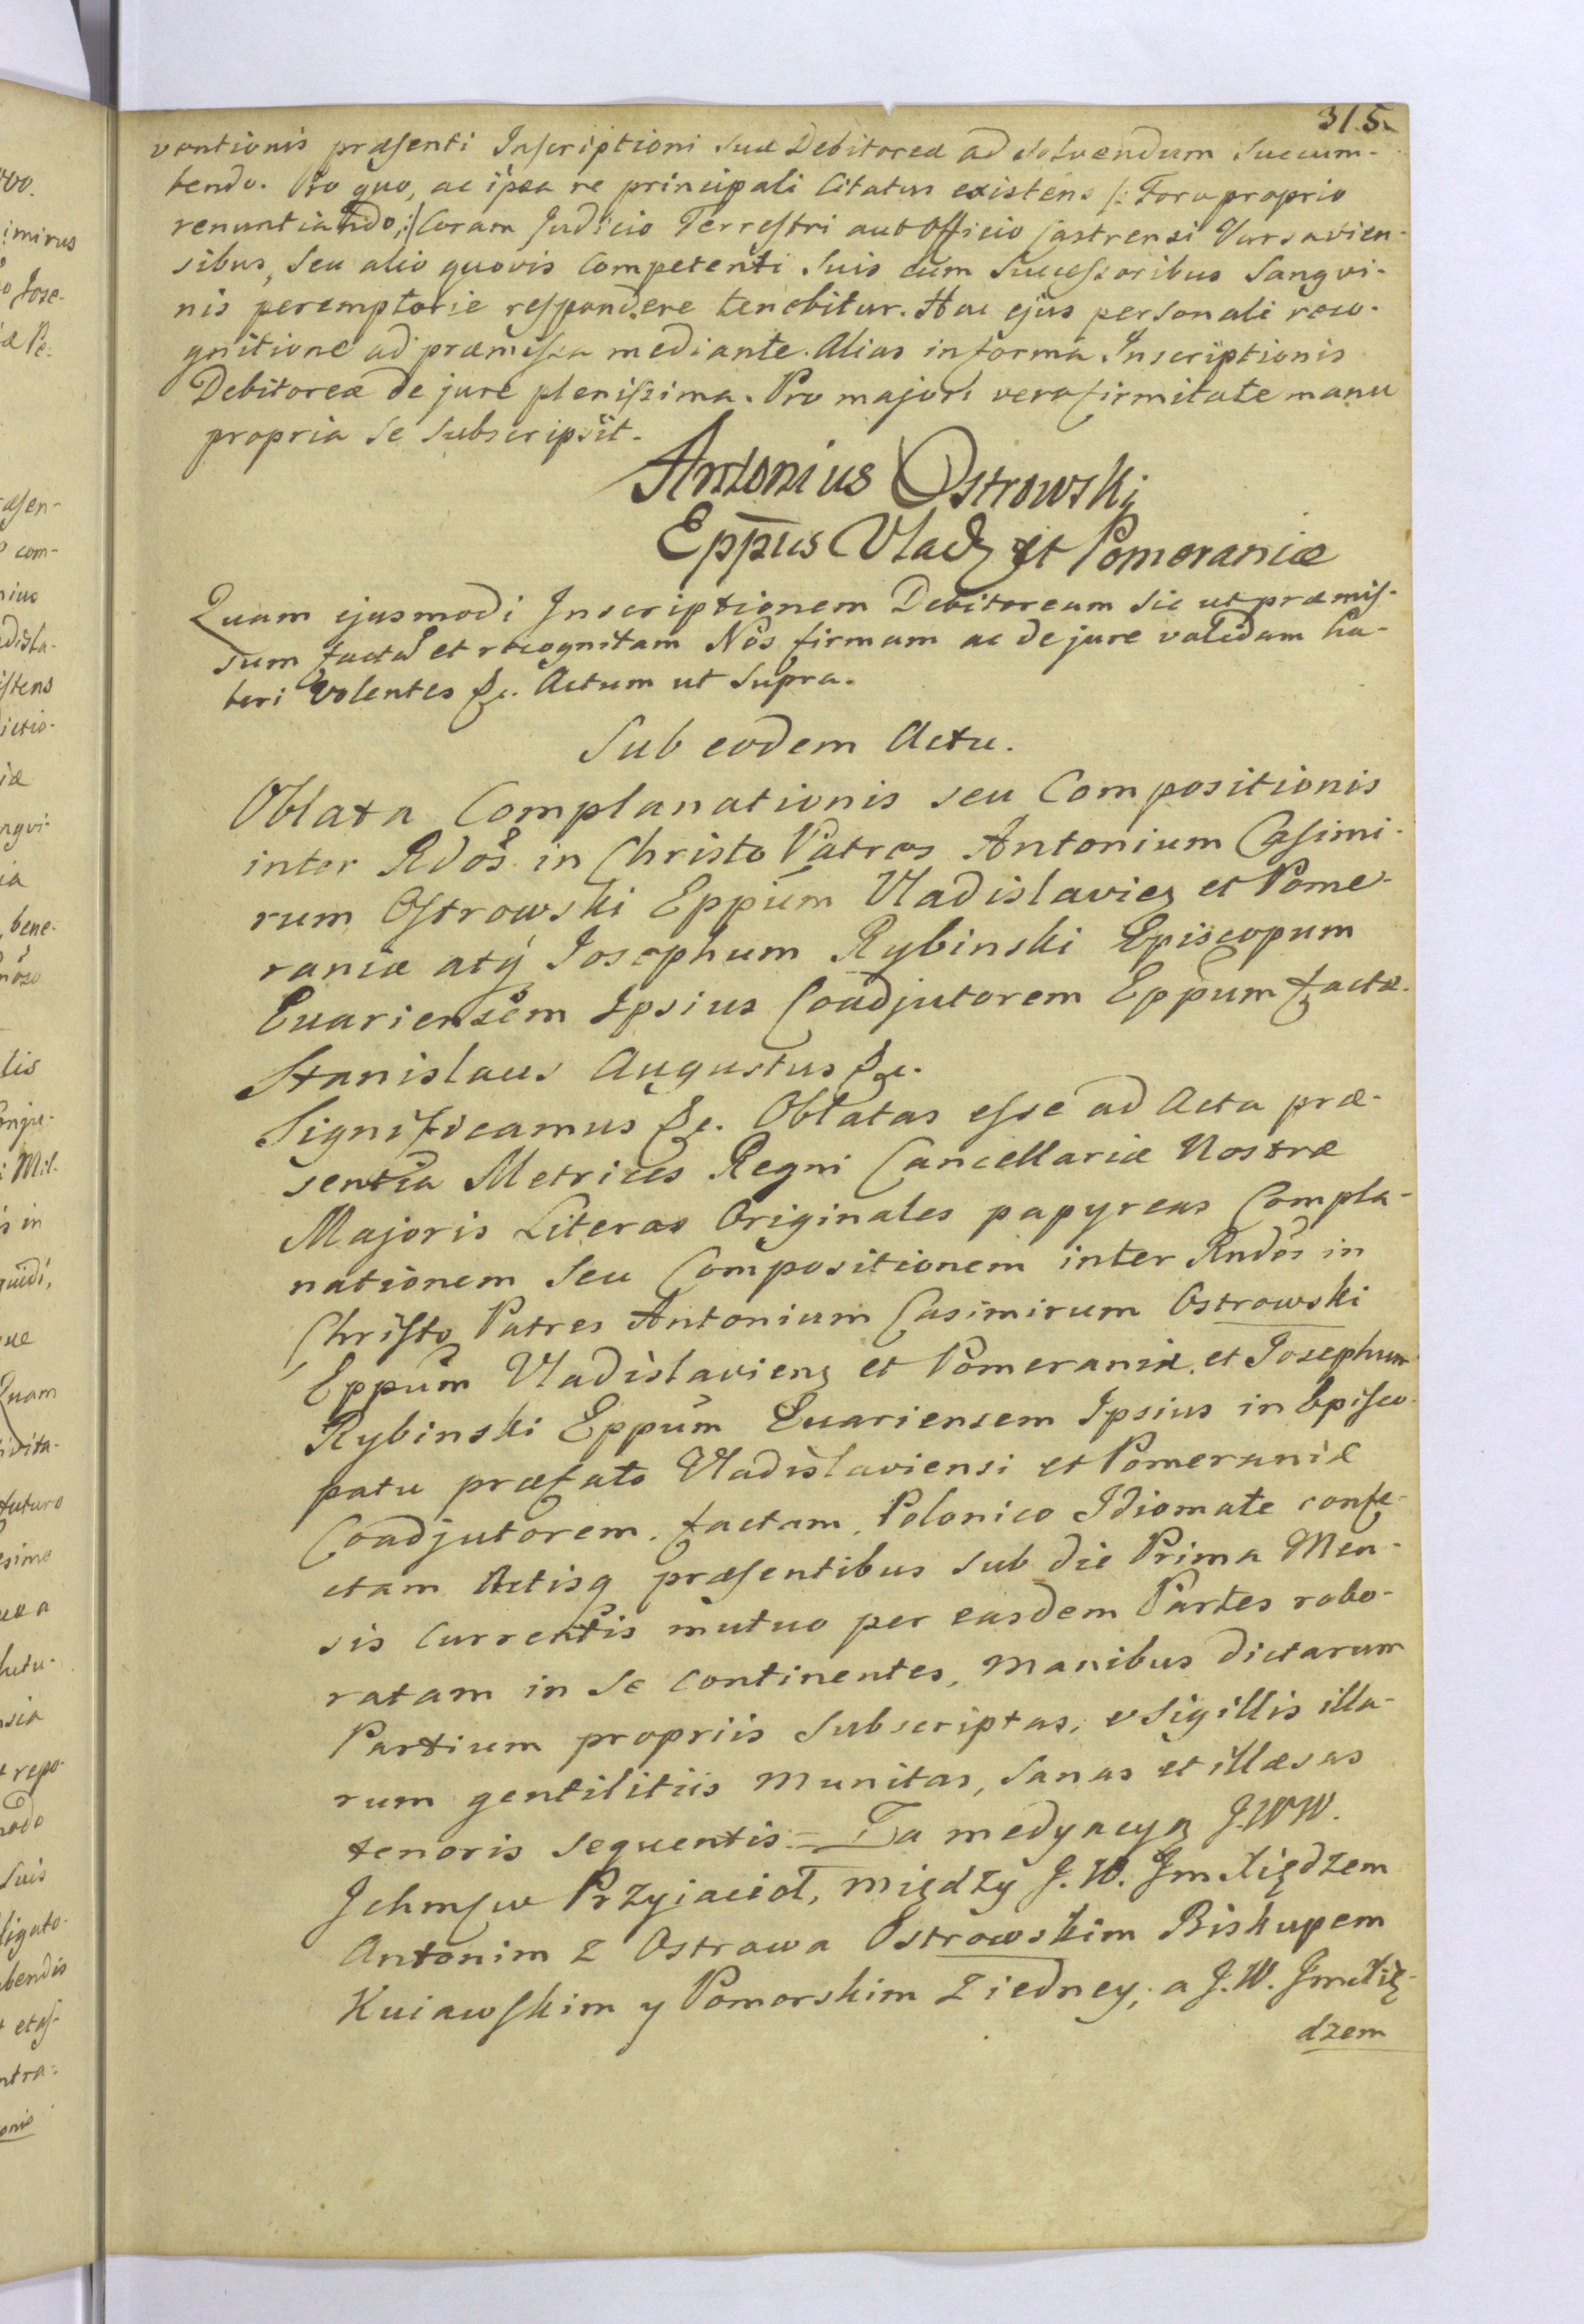 315.
ventionis præsenti Inscriptioni suæ Debitoreæ ad solvendum succum-
bendo. Pro quo, ac ipsa re principali Citatus existens /: Foro proprio
renuntiando, :/ Coram Judicio Terrestri aut Officio Castrensi Varsavien-
sibus, seu alio quovis Competenti suis cum Successoribus Sangvi-
nis peremptorie respondere tenebitur. Hac ejus personali reco-
gnitione ad præmissa mediante. Alias in forma Inscriptionis
Debitoreæ de jure plenissima. Pro majori vero firmitate manu
propria se subscripsit.
Antonius Ostrowski
Eppus Vlad et Pomeraniæ
Quam ejusmodi Inscriptionem Debitoream sic ut præmis-
sum facta et recognitam Nos firmam ac de jure validam ha-
beri Volentes &c. Actum ut supra.
Sub eodem Actu.
Oblata Complanationis seu Compositionis
inter Rdos in Christo Patres Antonium Casimi-
rum Ostrowski Eppum Vladislavien et Pome-
raniæ atq Josephum Rybinski Episcopum
Euariensem Ipsius Coadjutorem Eppum factæ.
Stanislaus Augustus &c.
Significamus &c. Oblatas esse ad Acta præ-
sentia Metrices Regni Cancellariæ Nostræ
Majoris Literas Originales papyreas Compla-
nationem seu Compositionem inter Rndos in
Christo Patres Antonium Casimirum Ostrowski
Eppum Vladislavien et Pomeraniæ, et Josephum
Rybinski Eppum Euariensem Ipsius in Episco-
patu præfato Vladislaviensi et Pomeraniæ
Coadjutorem. factam, Polonico Idiomate confe-
ctam Actisq præsentibus sub die Prima Men-
sis Currentis mutuo per easdem Partes robo-
ratam in se Continentes, Manibus dictarum
Partium propriis subscriptas, & Sigillis illa-
rum gentilitiis munitas, sanas et illæsas
tenoris sequentis = Za medyacyą J.WW.
Ichmśćw Przyiacioł, między J.W. Jm Xiędzem
Antonim z Ostrowa Ostrowskim Biskupem
Kuiawskim y Pomorskim z iedney; a J.W. Jm Xię-
dzem